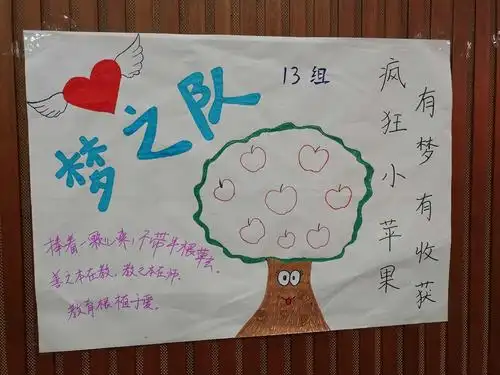 梦之队
13组
疯狂小苹果
有梦有收获
捧着一颗心来，不带半根草去。
善之本在教，教之本在师。
教育根植于爱。